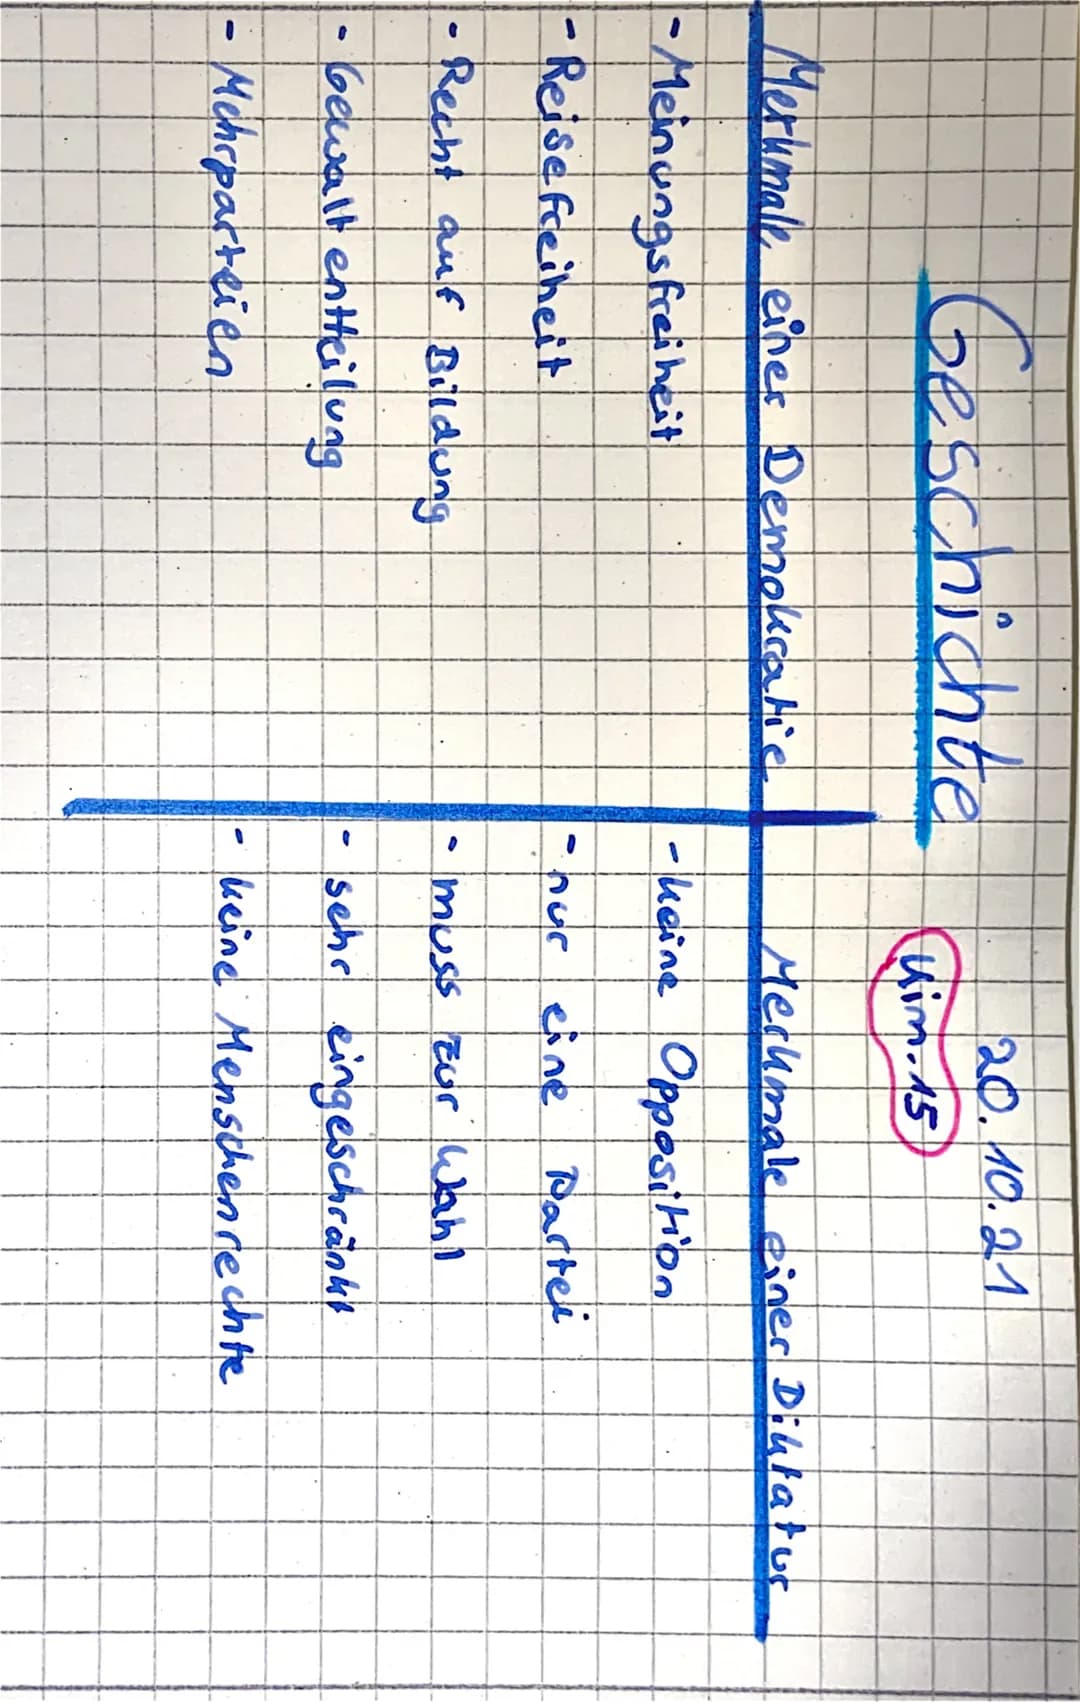 20.10.21
Geschichte
Kim.15
Merkmale einer Demokratie
- Meinungsfreiheit
- Reisefreiheit
- Recht auf Bildung
- Gewaltentteilung
- Mehrparteien
Merkmale einer Diktatur
- keine Opposition
- nur eine Partei
- muss zur Wahl
- sehr eingeschränkt
- keine Menschenrechte